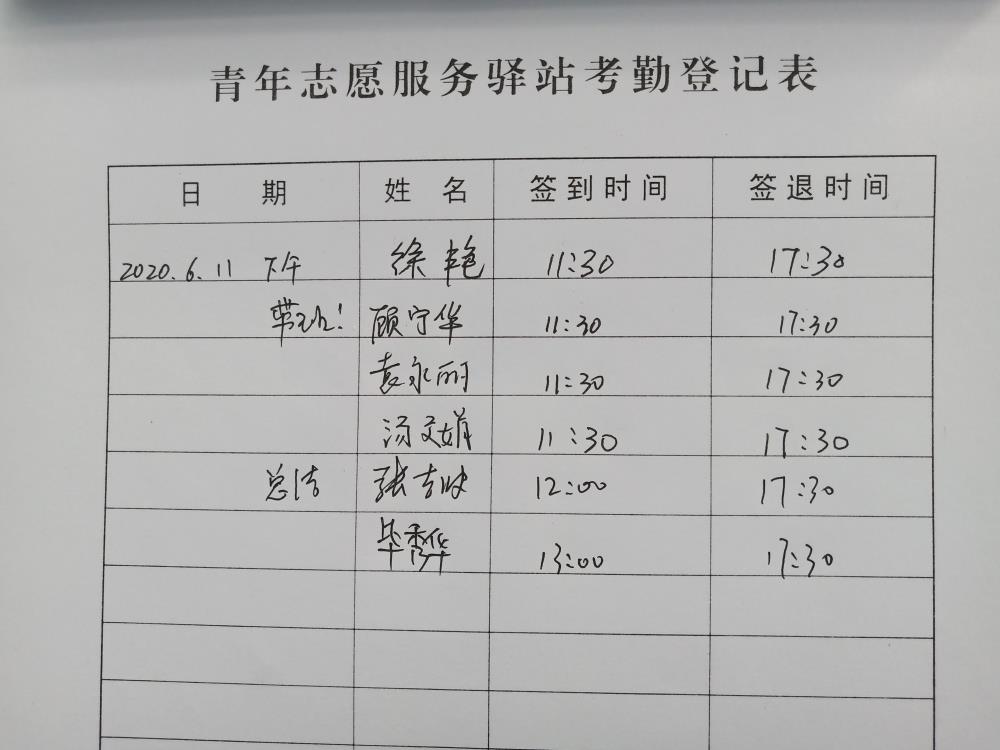 青年志愿服务驿站考勤登记表
日 期 姓 名 签到时间 签退时间
2020.6.11 下午 徐艳 11:30 17:30
带班: 顾宁华 11:30 17:30
袁永丽 11:30 17:30
汤文娟 11:30 17:30
总结 张 12:00 17:30
毕秀华 13:00 17:30